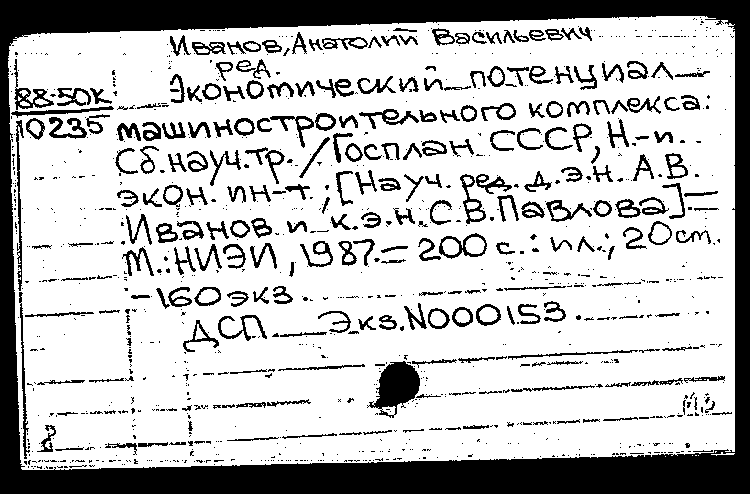 Иванов, Анатолий Васильевич
ред.
88-50К
10235
Экономический потенциал
машиностроительного комплекса:
Сб. науч. тр. / Госплан СССР, Н.-и.
экон. ин-т ; [Науч. ред. д. э. н. А. В.
Иванов и к. э. н. С. В. Павлова]. —
М. : НИЭИ, 1987. — 200 с. : ил. ; 20 см.
- 160 экз.
ДСП Экз. N000153.
8